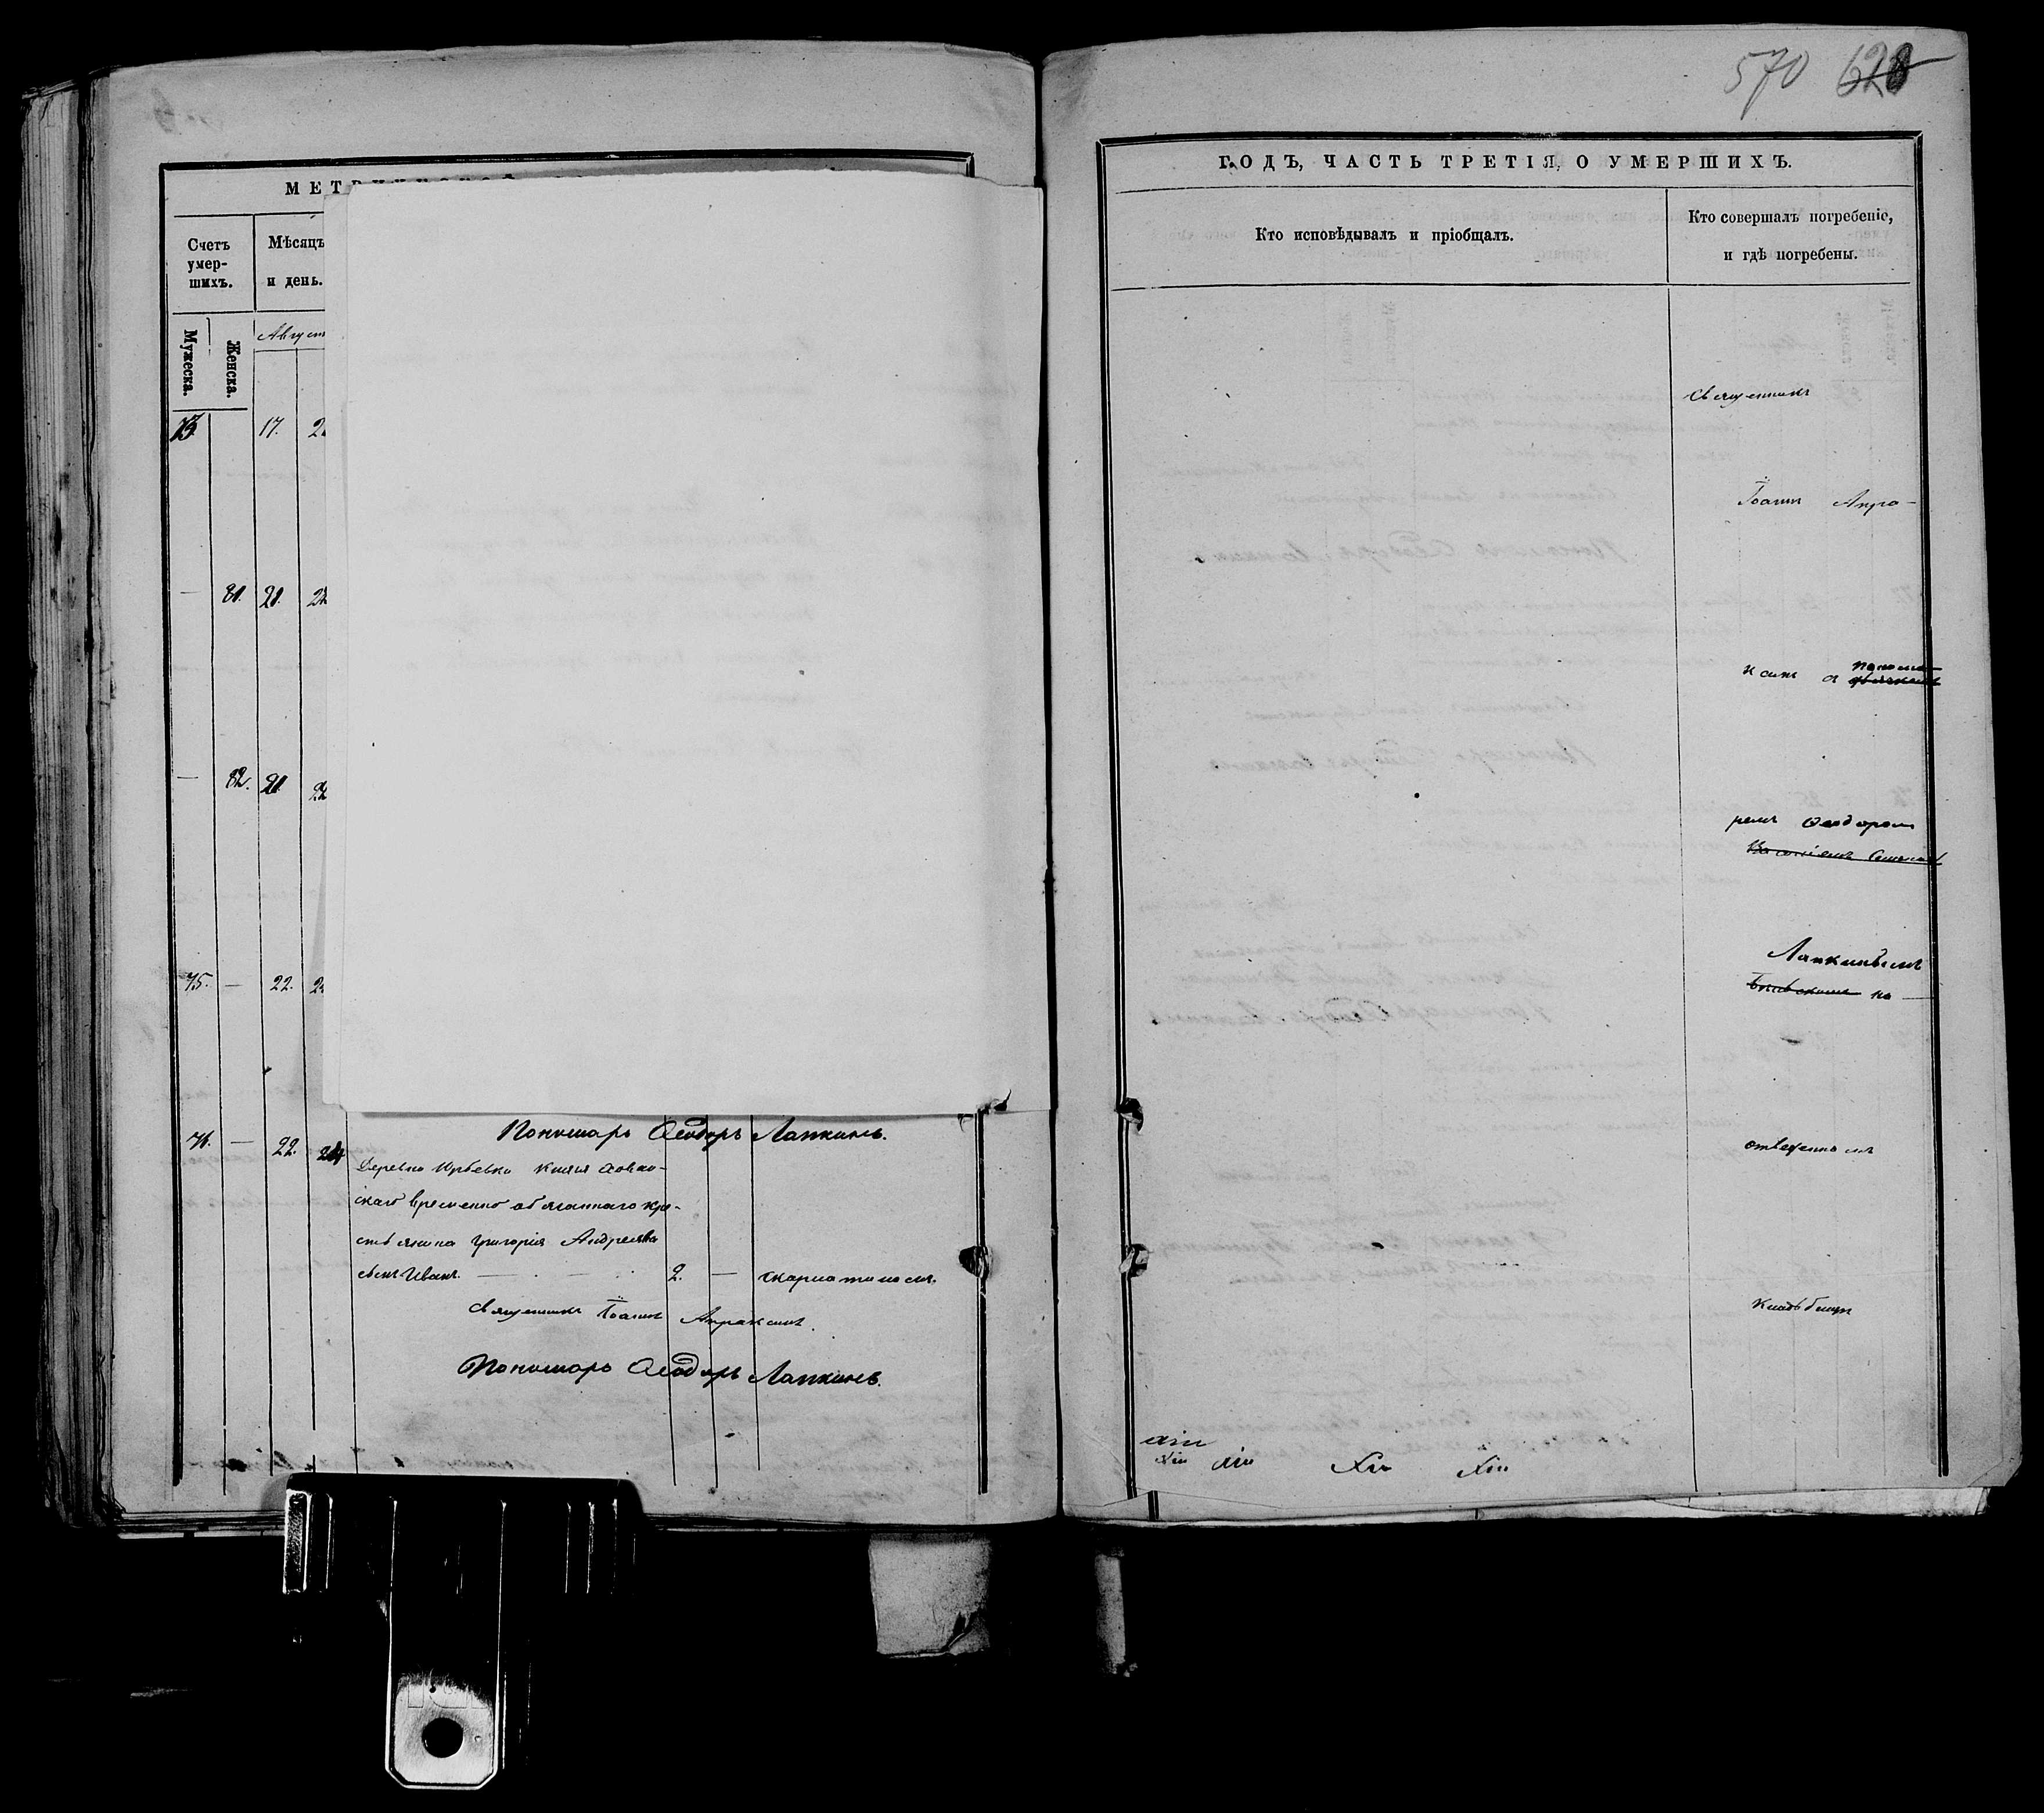 570 628
МЕТ
Счетъ умер-шихъ.
Мѣсяцъ и день.
Мужеска.
Женска.
Август
17.
— 81. 20. 22
— 82. 20. 22
75. — 22. 2
Пономарь Ѳеодоръ Лапкинъ.
76. — 22. 24
Деревни Юрьевки князя
скаго временно обязаннаго кре-
стьянина Григорія Андреева
сынъ Иванъ. — 2. — скарлатиною.
Священникъ Іоаннъ Апраксинъ.
Пономарь Ѳеодоръ Лапкинъ.
ГОДЪ, ЧАСТЬ ТРЕТІЯ, О УМЕРШИХЪ.
Кто исповѣдывалъ и пріобщалъ.
Кто совершалъ погребеніе,
и гдѣ погребены.
Священникъ
Іоаннъ Апра-
ксинъ съ понома-
ремъ Ѳеодоромъ
Лапкинымъ
на
отведенномъ
кладбищѣ